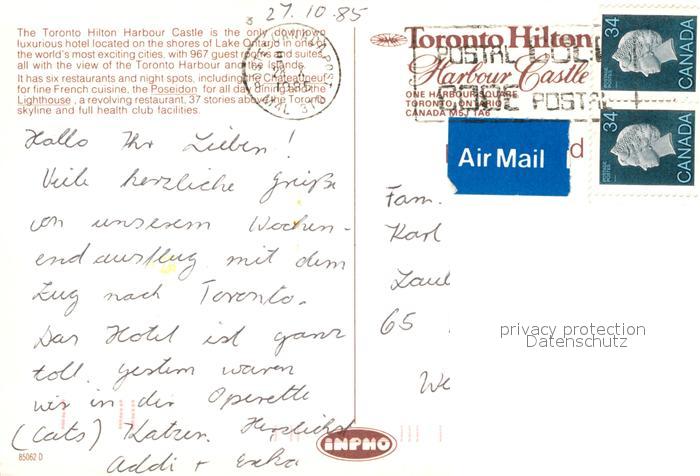 27.10.85
The Toronto Hilton Harbour Castle is the only downtown
luxurious hotel located on the shores of Lake Ontario in one of
the world's most exciting cities, with 967 guest rooms and suites,
all with the view of the Toronto Harbour and the Islands.
It has six restaurants and night spots, including the Chateauneuf
for fine French cuisine, the Poseidon for all day dining and the
Lighthouse, a revolving restaurant, 37 stories above the Toronto
skyline and full health club facilities.
Hallo Ihr Lieben!
Viele herzliche Grüße
von unserem Wochen-
endausflug mit dem
Zug nach Toronto.
Das Hotel ist ganz
toll. gestern waren
wir in der Operette
(Cats) Katzen. Herzlichst
Addi + Erika
85062 D
INPHO
Toronto Hilton
Harbour Castle
ONE HARBOUR SQUARE
TORONTO, ONTARIO
CANADA M5J 1A6
POSTAL CODE
CODE POSTAL
Air Mail
d
34
CANADA
POSTAGE
POSTES
34
CANADA
POSTAGE
POSTES
Fam.
Karl
65
We
privacy protection
Datenschutz